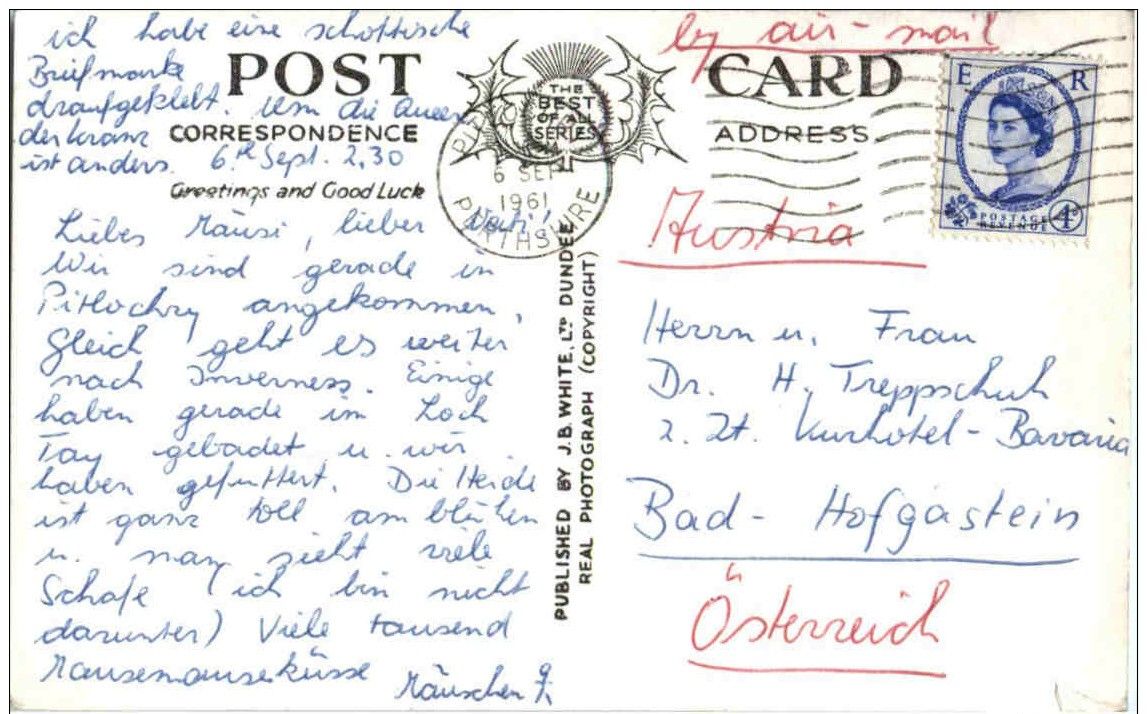 ich habe eine schottische
Briefmarke
draufgeklebt. Um die Queen
der Kranz
ist anders. 6th Sept. 2.30
POST CARD
THE
BEST
OF ALL
SERIES
CORRESPONDENCE
ADDRESS
Greetings and Good Luck
Liebes Mäusi, lieber
Wir sind gerade in
Pitlochry angekommen,
Gleich geht es weiter
nach Inverness. Einige
haben gerade im Loch
Tay gebadet u. wir
haben gefuttert. Die Heide
ist ganz toll am blühen
u. man sieht viele
Schafe (ich bin nicht
darunter) Viele tausend
Mausemauseküsse
Mäuschen
6 SEP
1961
PERTHSHIRE
PUBLISHED BY J.B. WHITE, LTD DUNDEE
REAL PHOTOGRAPH (COPYRIGHT)
by air-mail
E R
POSTAGE
REVENUE
4D
Austria
Herrn u. Frau
Dr. H. Treppschuh
z. Zt. Kurhotel-Bavaria
Bad-Hofgastein
Österreich